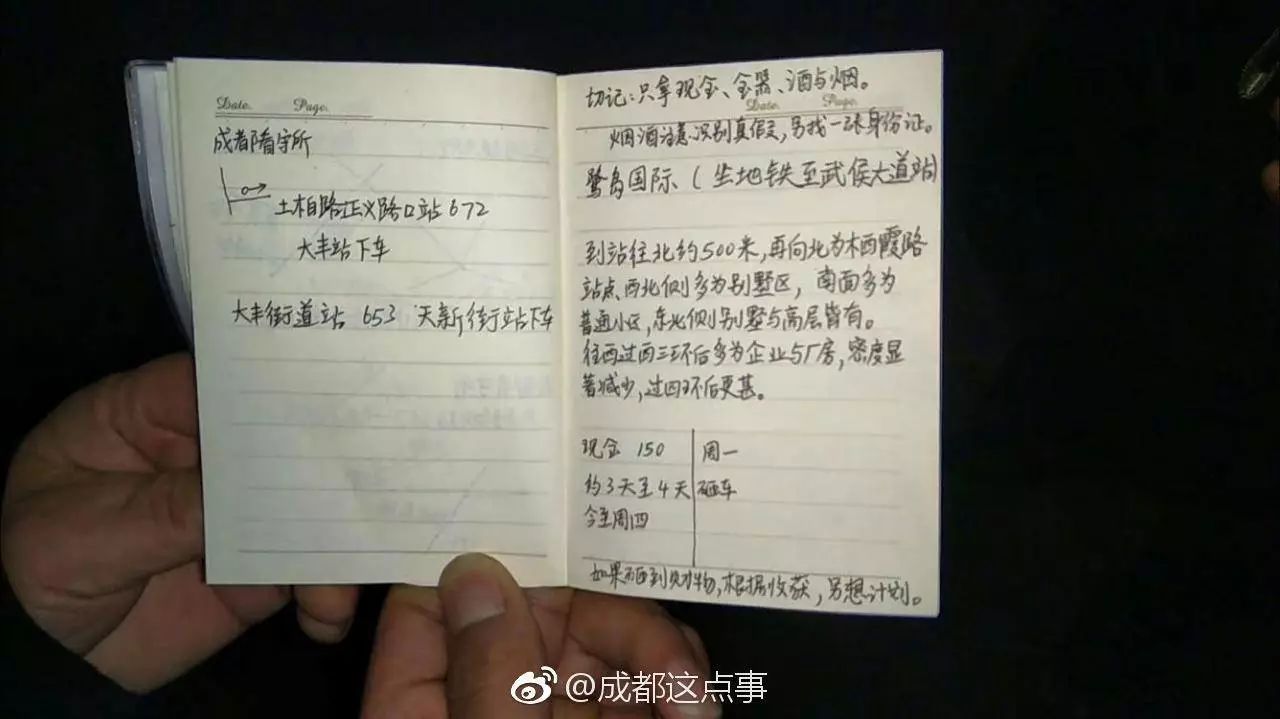 Date. Page.
成都看守所
土柏路正义路口站 672
大丰站下车
大丰街道站 653 天新街站下车
切记:只拿现金、金器、酒与烟。
Date. Page.
烟酒注意识别真假,另找一张身份证。
鹭岛国际、(坐地铁至武侯大道站)
到站往北约500米,再向北为栖霞路
站点、西北侧多为别墅区,南面多为
普通小区,东北侧别墅与高层皆有。
往西过西三环后多为企业与厂房,密度显
著减少,过四环后更甚。
现金 150
周一
约3天至4天
砸车
今至周四
如果砸到财物,根据收获,另想计划。
@成都这点事